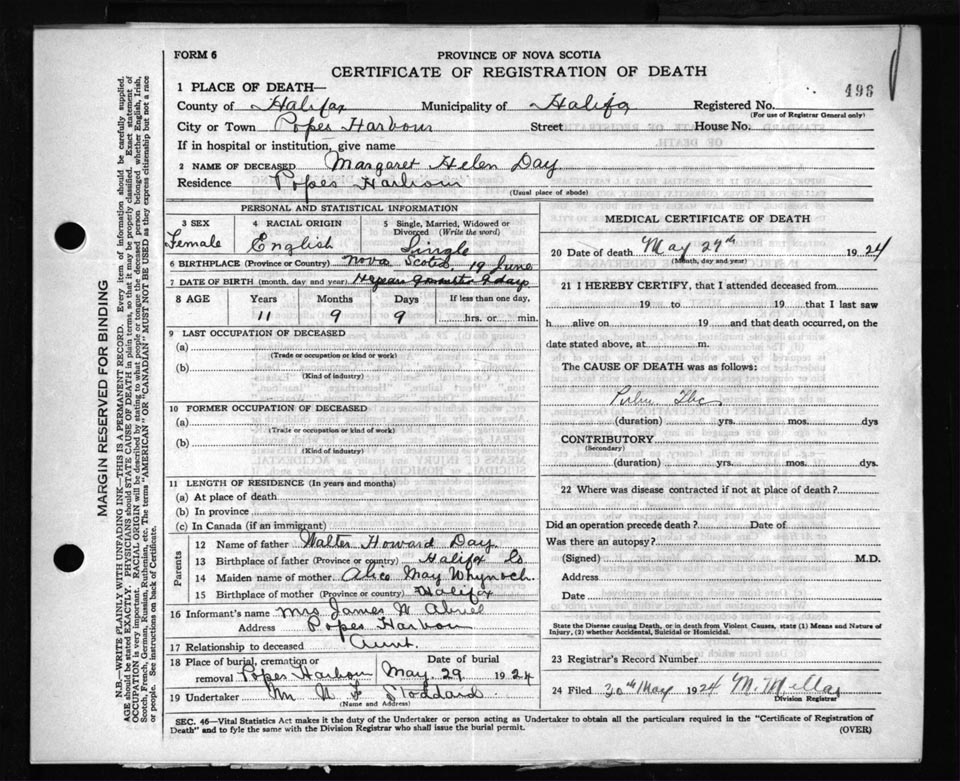 FORM 6
PROVINCE OF NOVA SCOTIA
CERTIFICATE OF REGISTRATION OF DEATH
498
1 PLACE OF DEATH—
County of Halifax Municipality of Halifax Registered No.
(For use of Registrar General only)
City or Town Popes Harbour Street House No.
If in hospital or institution, give name
2 NAME OF DECEASED Margaret Helen Day
Residence Popes Harbour
(Usual place of abode)
PERSONAL AND STATISTICAL INFORMATION
3 SEX 4 RACIAL ORIGIN 5 Single, Married, Widowed or Divorced (Write the word)
Female English Single
6 BIRTHPLACE (Province or Country) Nova Scotia. 19 June
7 DATE OF BIRTH (month, day and year)
8 AGE Years Months Days If less than one day,
11 9 9 hrs. or min.
9 LAST OCCUPATION OF DECEASED
(a)
(Trade or occupation or kind or work)
(b)
(Kind of industry)
10 FORMER OCCUPATION OF DECEASED
(a)
(Trade or occupation or kind or work)
(b)
(Kind of industry)
11 LENGTH OF RESIDENCE (In years and months)
(a) At place of death
(b) In province
(c) In Canada (if an immigrant)
Parents
12 Name of father Walter Howard Day
13 Birthplace of father (Province or country) Halifax Co
14 Maiden name of mother. Alice May Whynoch.
15 Birthplace of mother (Province or country) Halifax
16 Informant's name Mrs James W
Address Popes Harbour
17 Relationship to deceased Aunt.
18 Place of burial, cremation or removal Popes Harbour Date of burial May. 29. 1924
19 Undertaker Stoddard
(Name and Address)
MEDICAL CERTIFICATE OF DEATH
20 Date of death May 27th 1924
(Month, day and year)
21 I HEREBY CERTIFY, that I attended deceased from
19 to 19 that I last saw
h alive on 19 and that death occurred, on the
date stated above, at m.
The CAUSE OF DEATH was as follows:
(duration) yrs. mos. dys
CONTRIBUTORY
(Secondary)
(duration) yrs. mos. dys.
22 Where was disease contracted if not at place of death?
Did an operation precede death? Date of
Was there an autopsy?
(Signed) M.D.
Address
Date
State the Disease causing Death, or in death from Violent Causes, state (1) Means and Nature of
Injury, (2) whether Accidental, Suicidal or Homicidal.
23 Registrar's Record Number
24 Filed 30th May 1924
Division Registrar
SEC. 46—Vital Statistics Act makes it the duty of the Undertaker or person acting as Undertaker to obtain all the particulars required in the "Certificate of Registration of
Death" and to fyle the same with the Division Registrar who shall issue the burial permit.
(OVER)
MARGIN RESERVED FOR BINDING
N.B.—WRITE PLAINLY WITH UNFADING INK—THIS IS A PERMANENT RECORD. Every item of information should be carefully supplied.
AGE should be stated EXACTLY. PHYSICIANS should STATE CAUSE OF DEATH in plain terms, so that it may be properly classified. Exact statement of
OCCUPATION is very important. RACIAL ORIGIN will be described by stating to what people or tongue the deceased person belonged whether English, Irish,
Scotch, French, German, Russian, Ruthenian, etc. The terms "AMERICAN" OR "CANADIAN" MUST NOT BE USED as they express citizenship but not a race
or people. See instructions on back of Certificate.